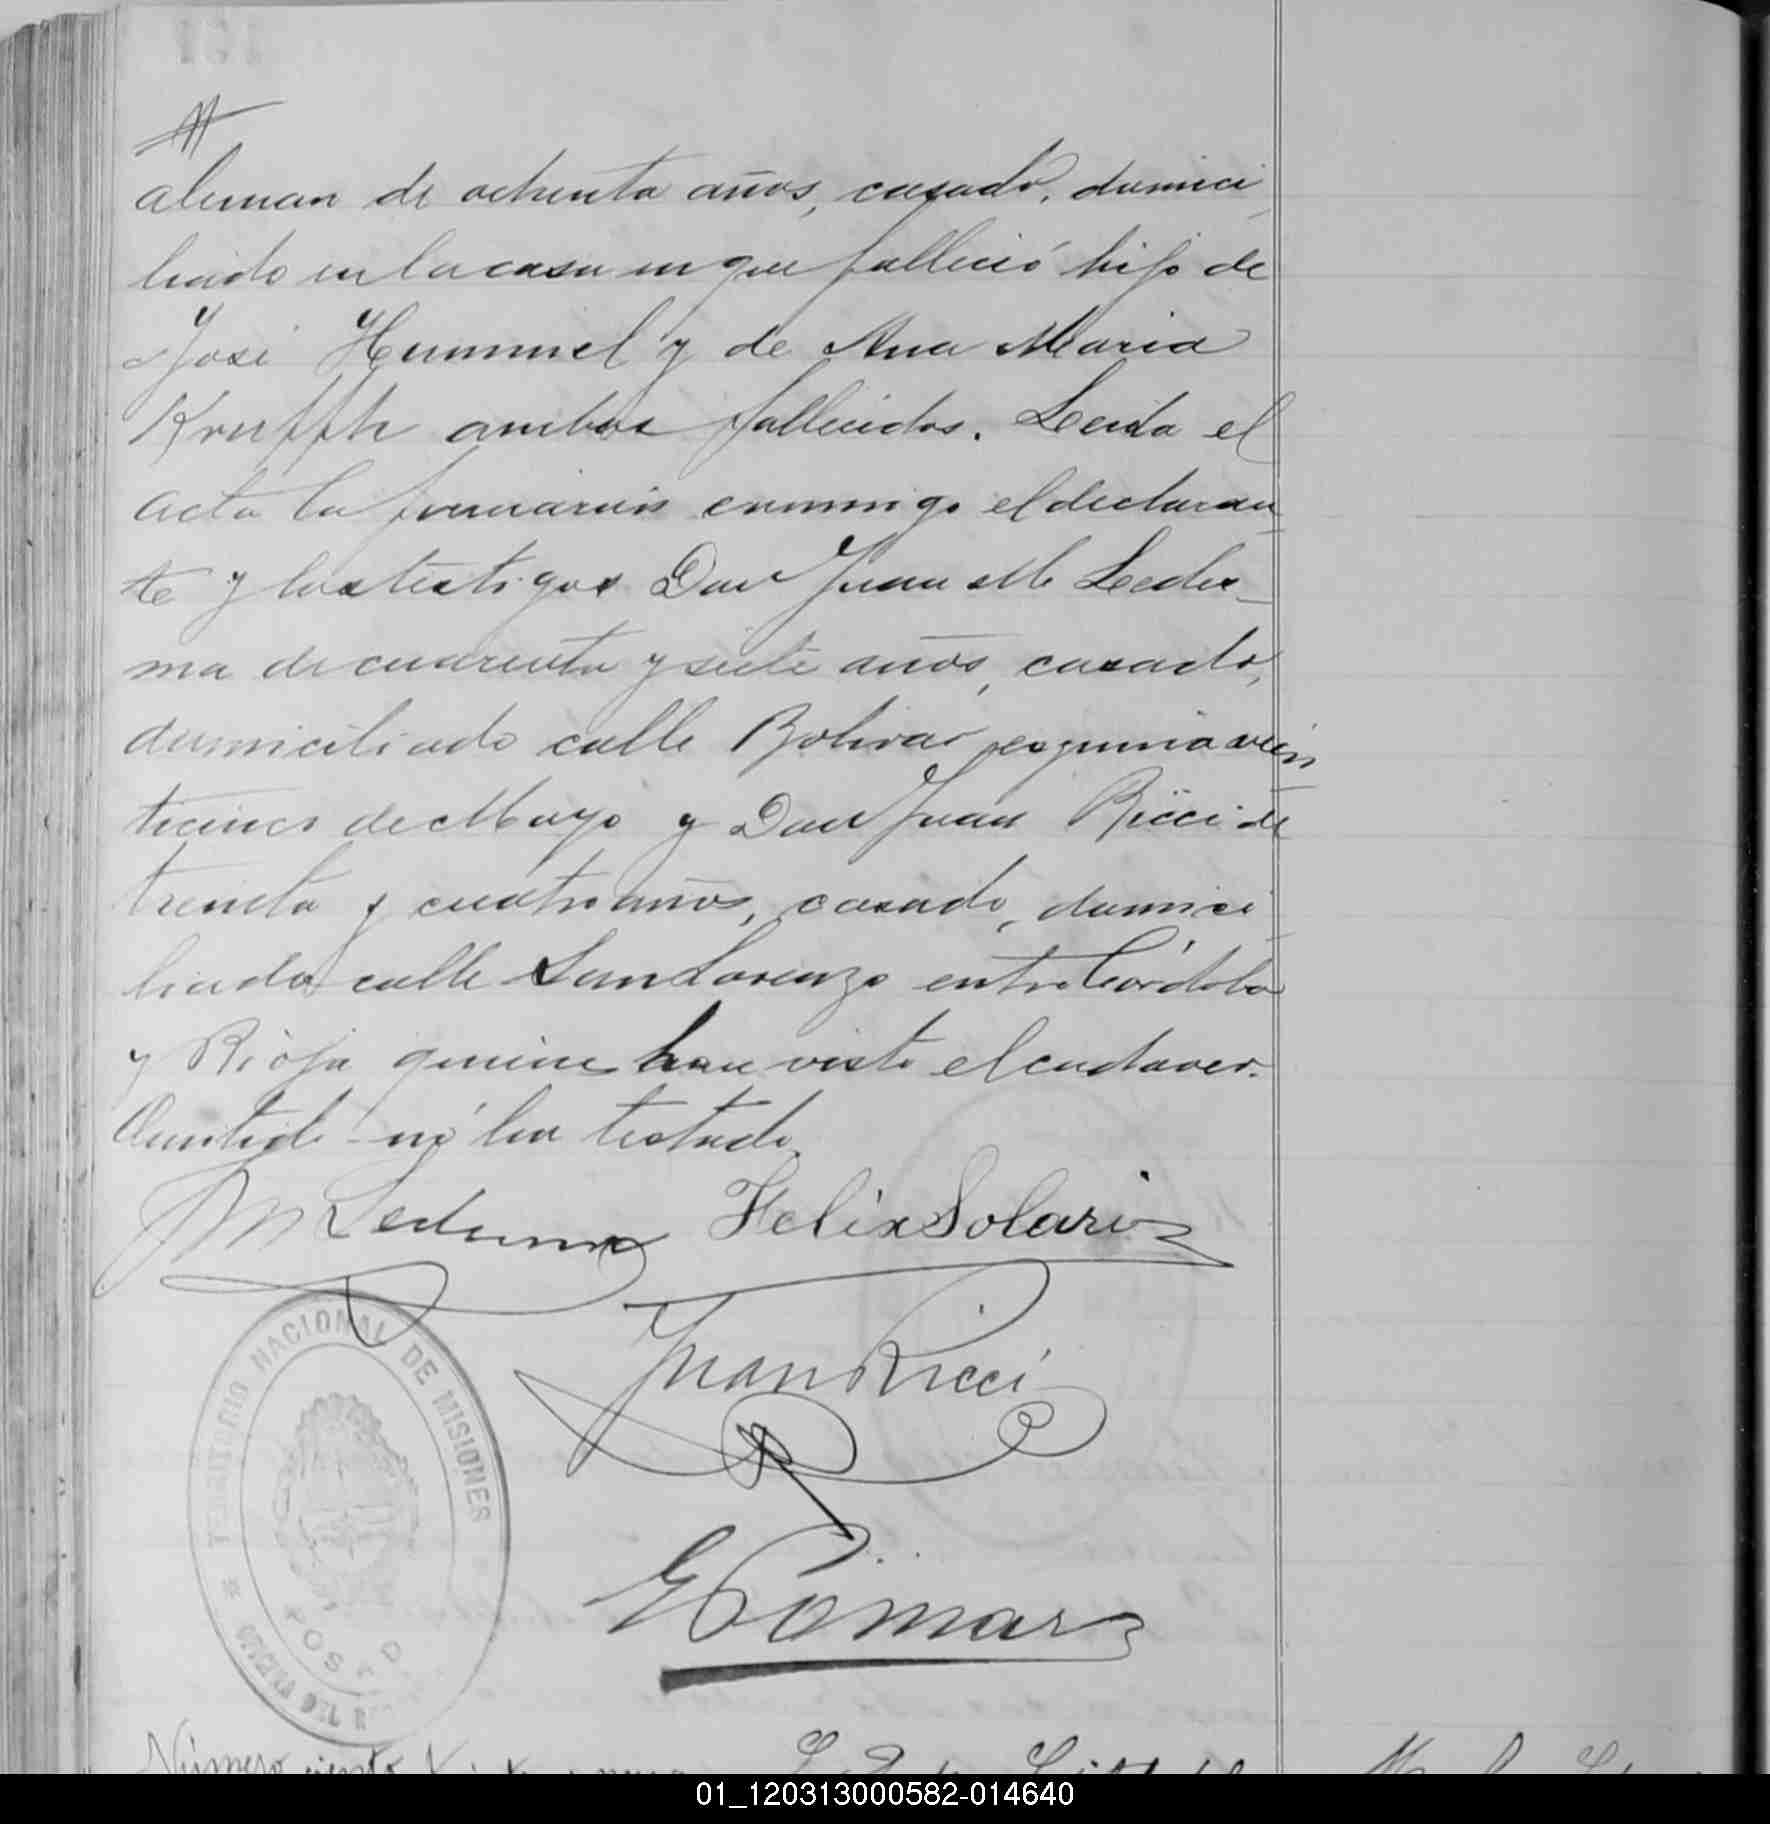 aleman de ochenta años, casado, domici
liado en la casa en que falleció hijo de
José Hummel y de Ana Maria
Kruffth ambos fallecidos. Leida el
acta la firmaron conmigo el declaran
te y los testigos Don Juan M Ledes_
ma de cuarenta y siete años, casado,
domiciliado calle Bolivar esquina vein
ticinco de Mayo y Don Juan Ricci de
treinta y cuatro años, casado, domici
liado calle San Lorenzo entre Córdoba
y Rioja quienes han visto el cadaver.
no ha testado.
JM Ledesma Felix Solari
Juan Ricci
TERRITORIO NACIONAL DE MISIONES
POSAD
Número ciento
01_120313000582-014640